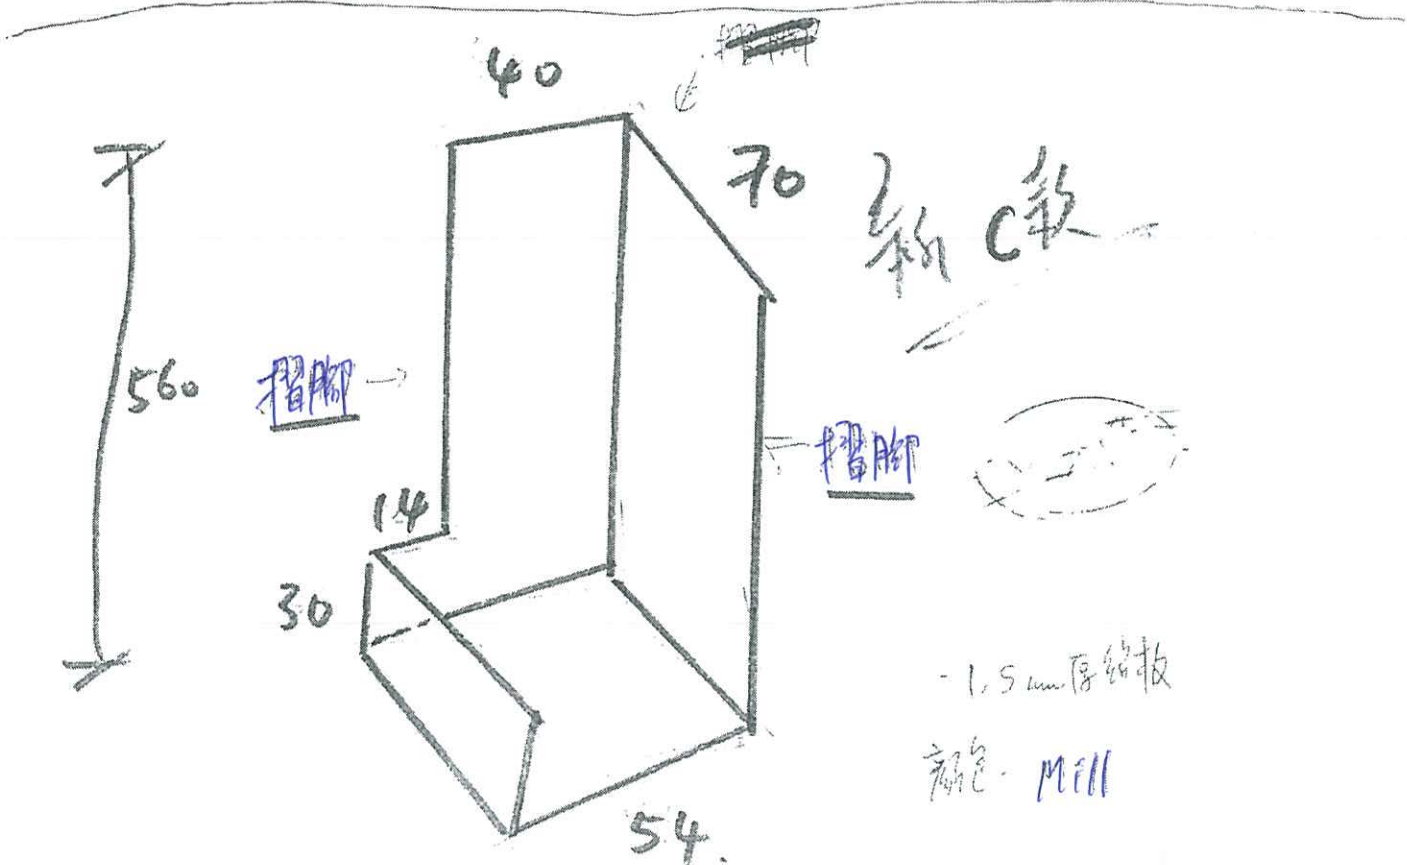 40
70
C款
560
摺腳
摺腳
14
30
-1.5mm厚鋁板
顏色- Mill
54.